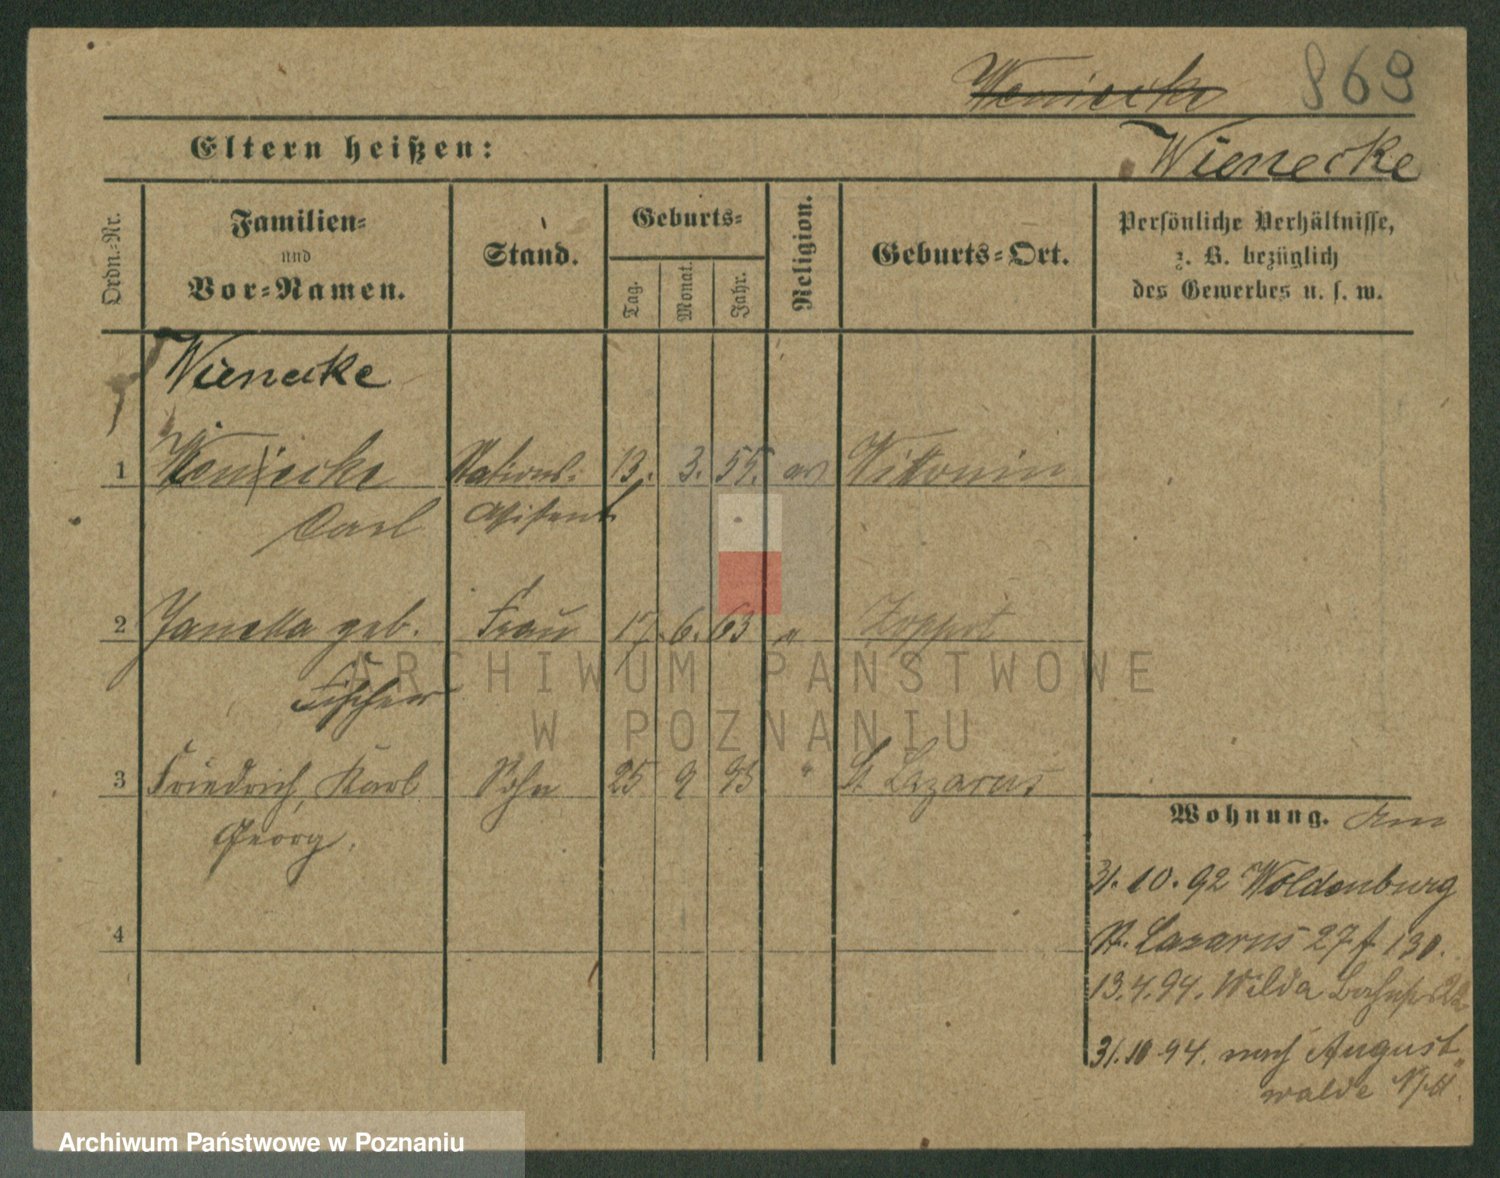 Weniecke 869
Eltern heißen:
Wienecke
Ordn.-Nr.
Familien-
und
Vor-Namen.
Stand.
Geburts-
Tag.
Monat.
Jahr.
Religion.
Geburts-Ort.
Persönliche Verhältnisse,
z. B. bezüglich
des Gewerbes u. s. w.
Wienecke
1 Weniecke Stations- 13. 3. 55. ev Wittonin
Carl Assistent
2 geb. Frau 17. 6. 63 " Zoppot
Fischer
3 Friedrich, Karl Sohn 25 9 93 " St Lazarus
Georg.
4
Wohnung.
31.10.92 Woldenburg
St. Lazarus 27 f 130.
13.4.94. Wilda Bahnhof 22
31.10.94. nach August
walde
ARCHIWUM PAŃSTWOWE
W POZNANIU
Archiwum Państwowe w Poznaniu